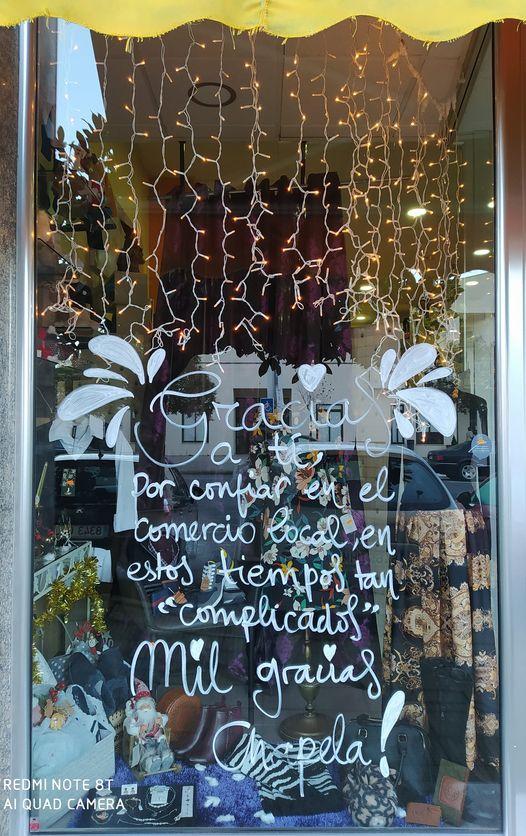 Gracias
a ti
Por confiar en el
comercio local, en
estos tiempos tan
"complicados"
Mil gracias
Chapela!
REDMI NOTE 8T
AI QUAD CAMERA